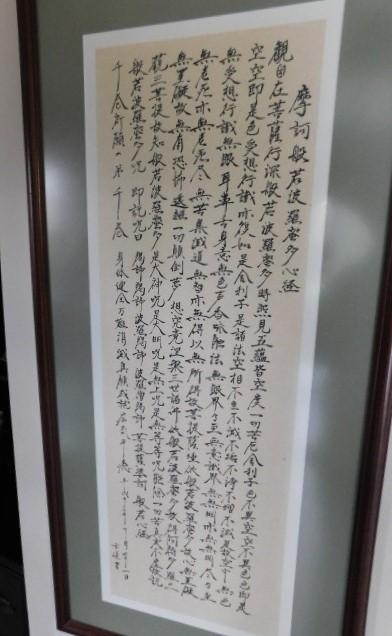 摩訶般若波羅蜜多心経
觀自在菩薩行深般若波羅蜜多時照見五蘊皆空度一切苦厄舎利子色不異空空不異色色即是
空空即是色受想行識亦復如是舎利子是諸法空相不生不滅不垢不浄不増不減是故空中無色
無受想行識無眼耳鼻舌身意無色声香味触法無眼界乃至無意識界無無明亦無無明尽乃至
無老死亦無老死尽無苦集滅道無智亦無得以無所得故菩提薩埵依般若波羅蜜多故心無罣礙
無罣礙故無有恐怖遠離一切顛倒夢想究竟涅槃三世諸仏依般若波羅蜜多故得阿耨多羅三
藐三菩提故知般若波羅蜜多是大神呪是大明呪是無上呪是無等等呪能除一切苦真実不虚故説
般若波羅蜜多呪即説呪曰羯諦羯諦波羅羯諦波羅僧羯諦菩提薩婆訶般若心経
千巻祈願の第千巻 身体健全万難消滅